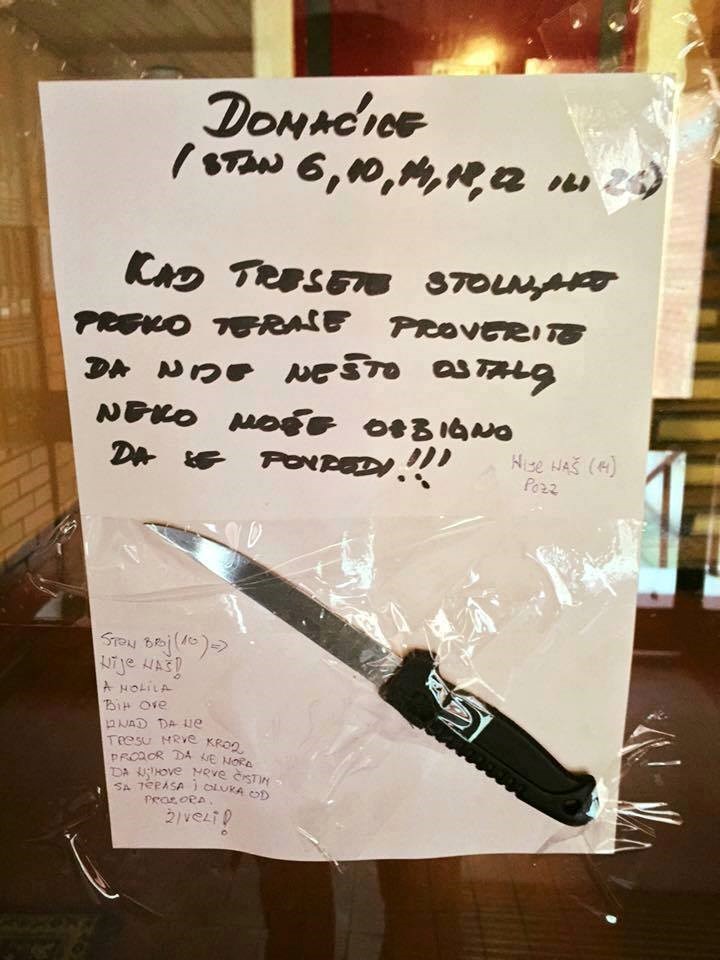 DOMAĆICE
(STAN 6, 10, 14, 18, 22 ILI 26)
KAD TRESETE STOLNJAKE
PREKO TERASE PROVERITE
DA NIJE NEŠTO OSTALO
NEKO MOŽE OZBILJNO
DA SE POVREDI!!!
NIJE NAŠ (14)
POZZ
STAN BROJ (10) =>
NIJE NAŠ!
A MOLILA
BIH OVE
IZNAD DA NE
TRESU MRVE KROZ
PROZOR DA NE MORA
DA NJIHOVE MRVE ČISTIM
SA TERASA I OLUKA OD
PROZORA.
ŽIVELI!